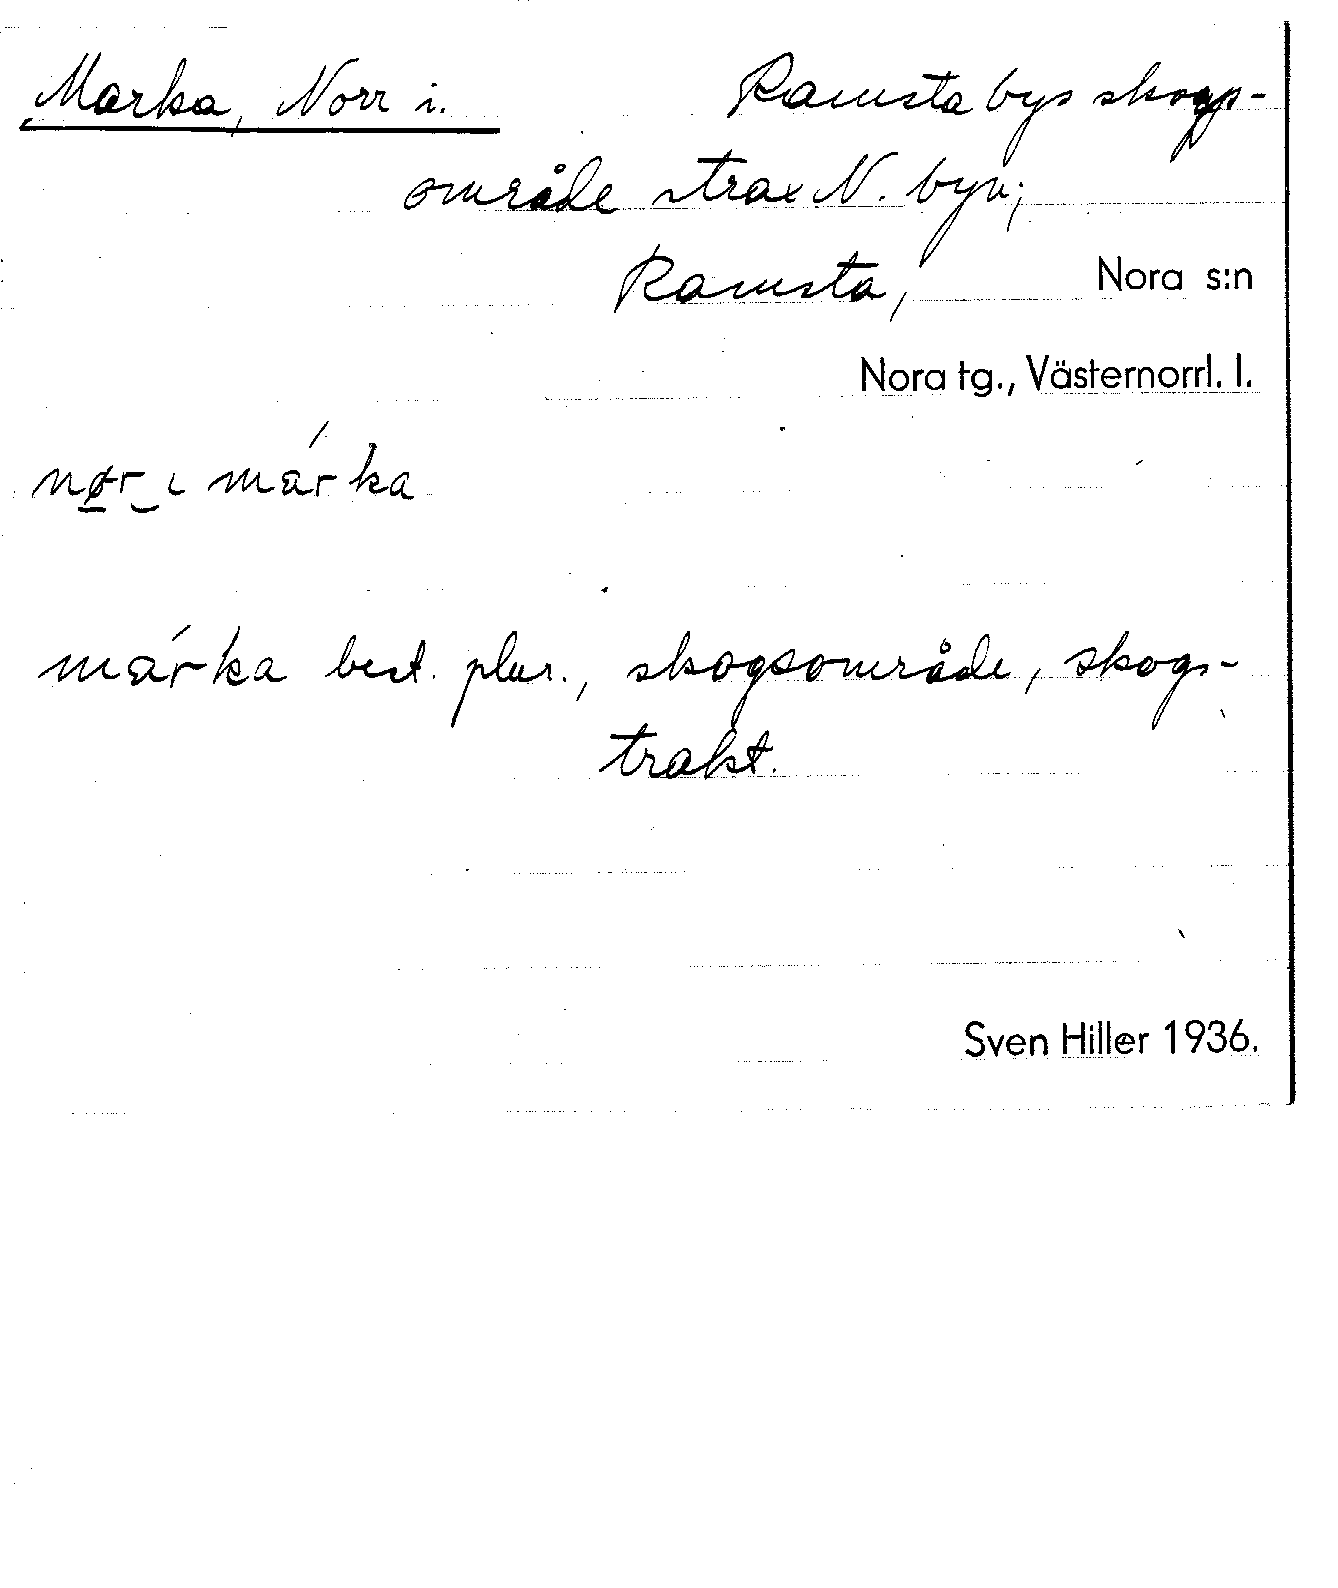 Marka, Norr i. Ramsta bys skogs-
område strax N. byn;
Ramsta, Nora s:n
Nora tg., Västernorrl. l.
nør ɩ márka
márka best. plur., skogsområde, skogs-
trakt.
Sven Hiller 1936.